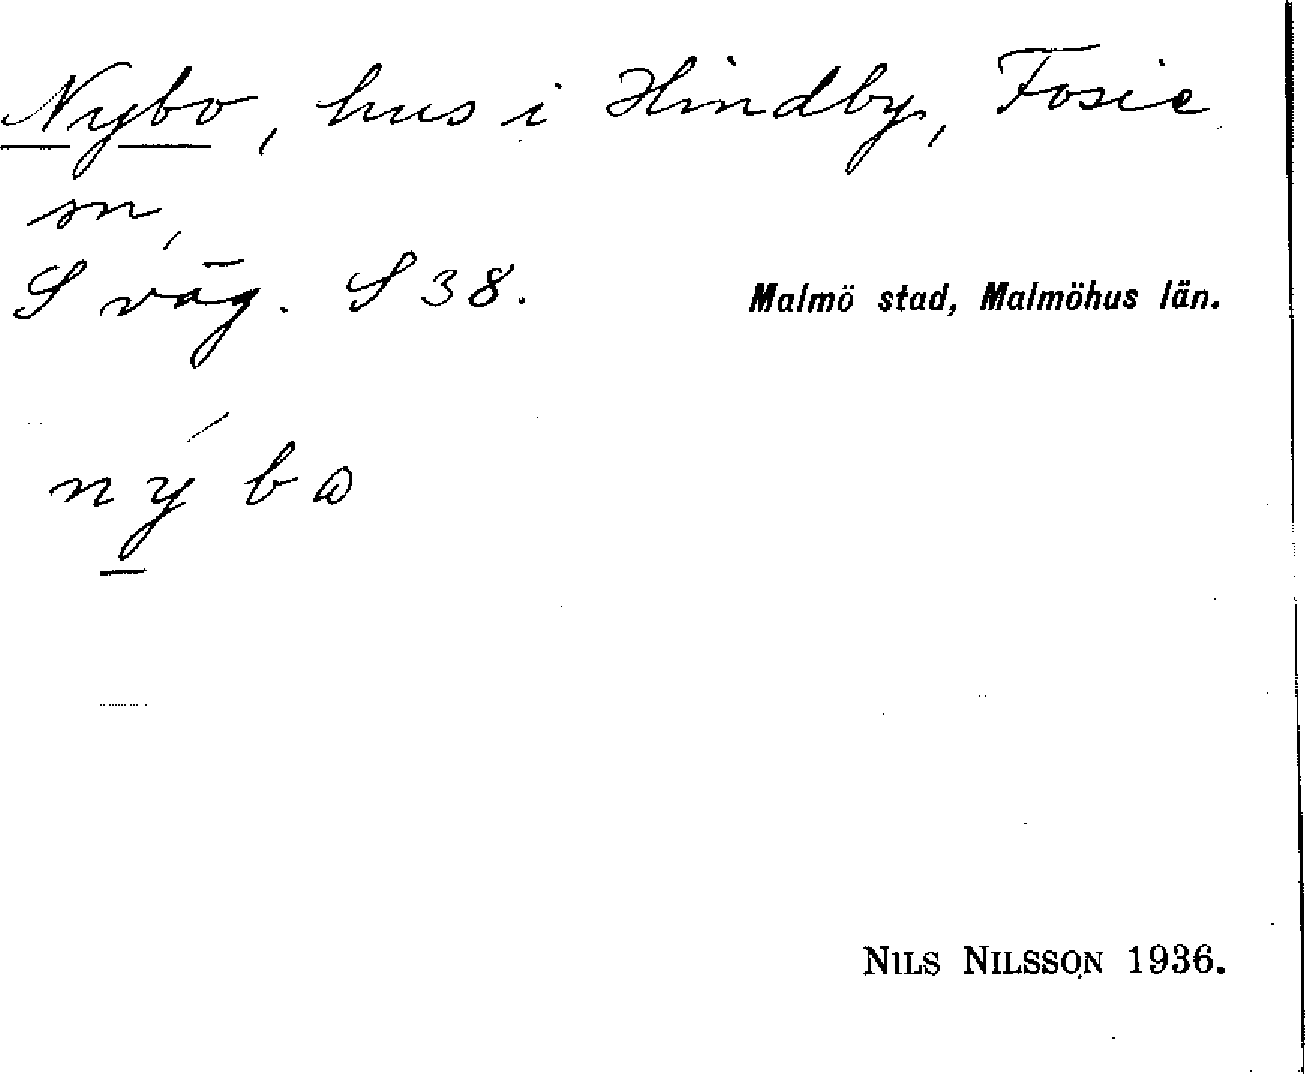 Nybo, hus i Hindby, Fosie
sn,
S väg. S 38.
Malmö stad, Malmöhus län.
nýbo
NILS NILSSON 1936.